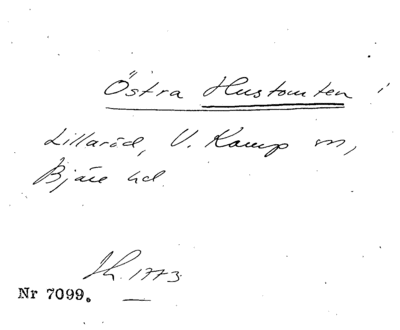 Östra Hustomten i
Lillaröd, V. Karup sn,
Bjäre hd.
Sk. 1773
Nr 7099.